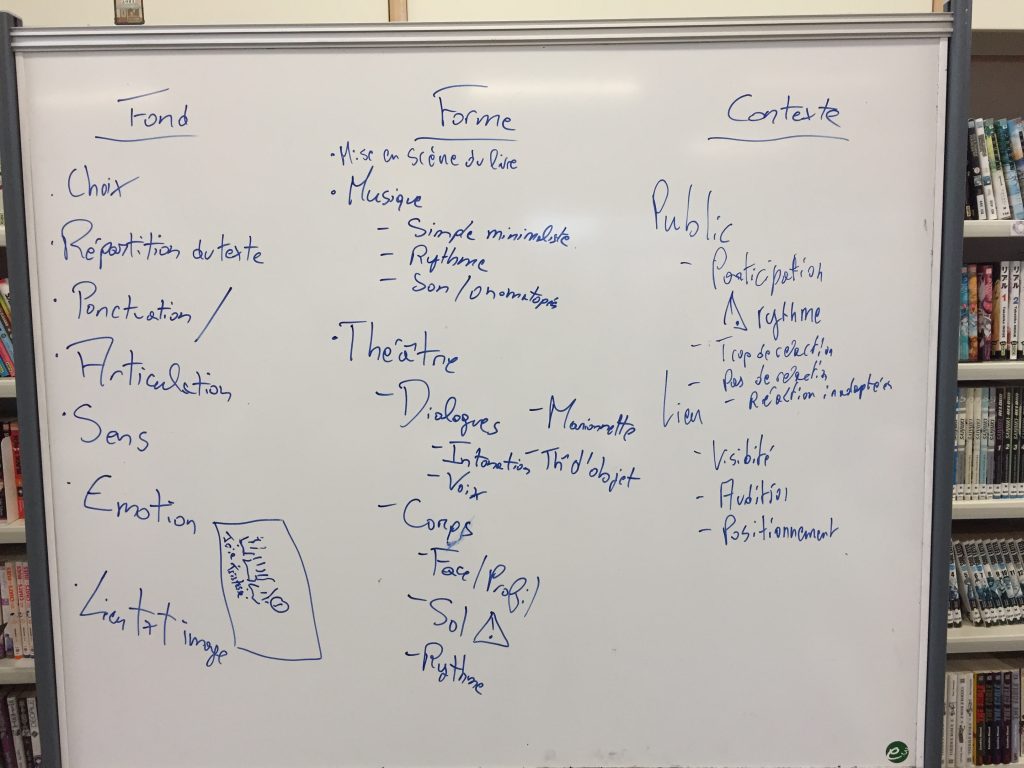 Fond
. Choix
. Répartition du texte
. Ponctuation /
. Articulation
. Sens
. Emotion
. Lien txt image
Forme
. Mise en scène du livre
. Musique
- Simple minimaliste
- Rythme
- Son / onomatopés
. Théâtre
- Dialogues - Marionnette
- Intonation - Th d'objet
- Voix
- Corps
- Face / Profil
- Sol ⚠
- Rythme
Contexte
Public
- Participation
⚠ rythme
- Trop de réaction
- Pas de réaction
- Réaction inadaptées
Lien
- Visibité
- Audition
- Positionnement
リアル 1
リアル 2